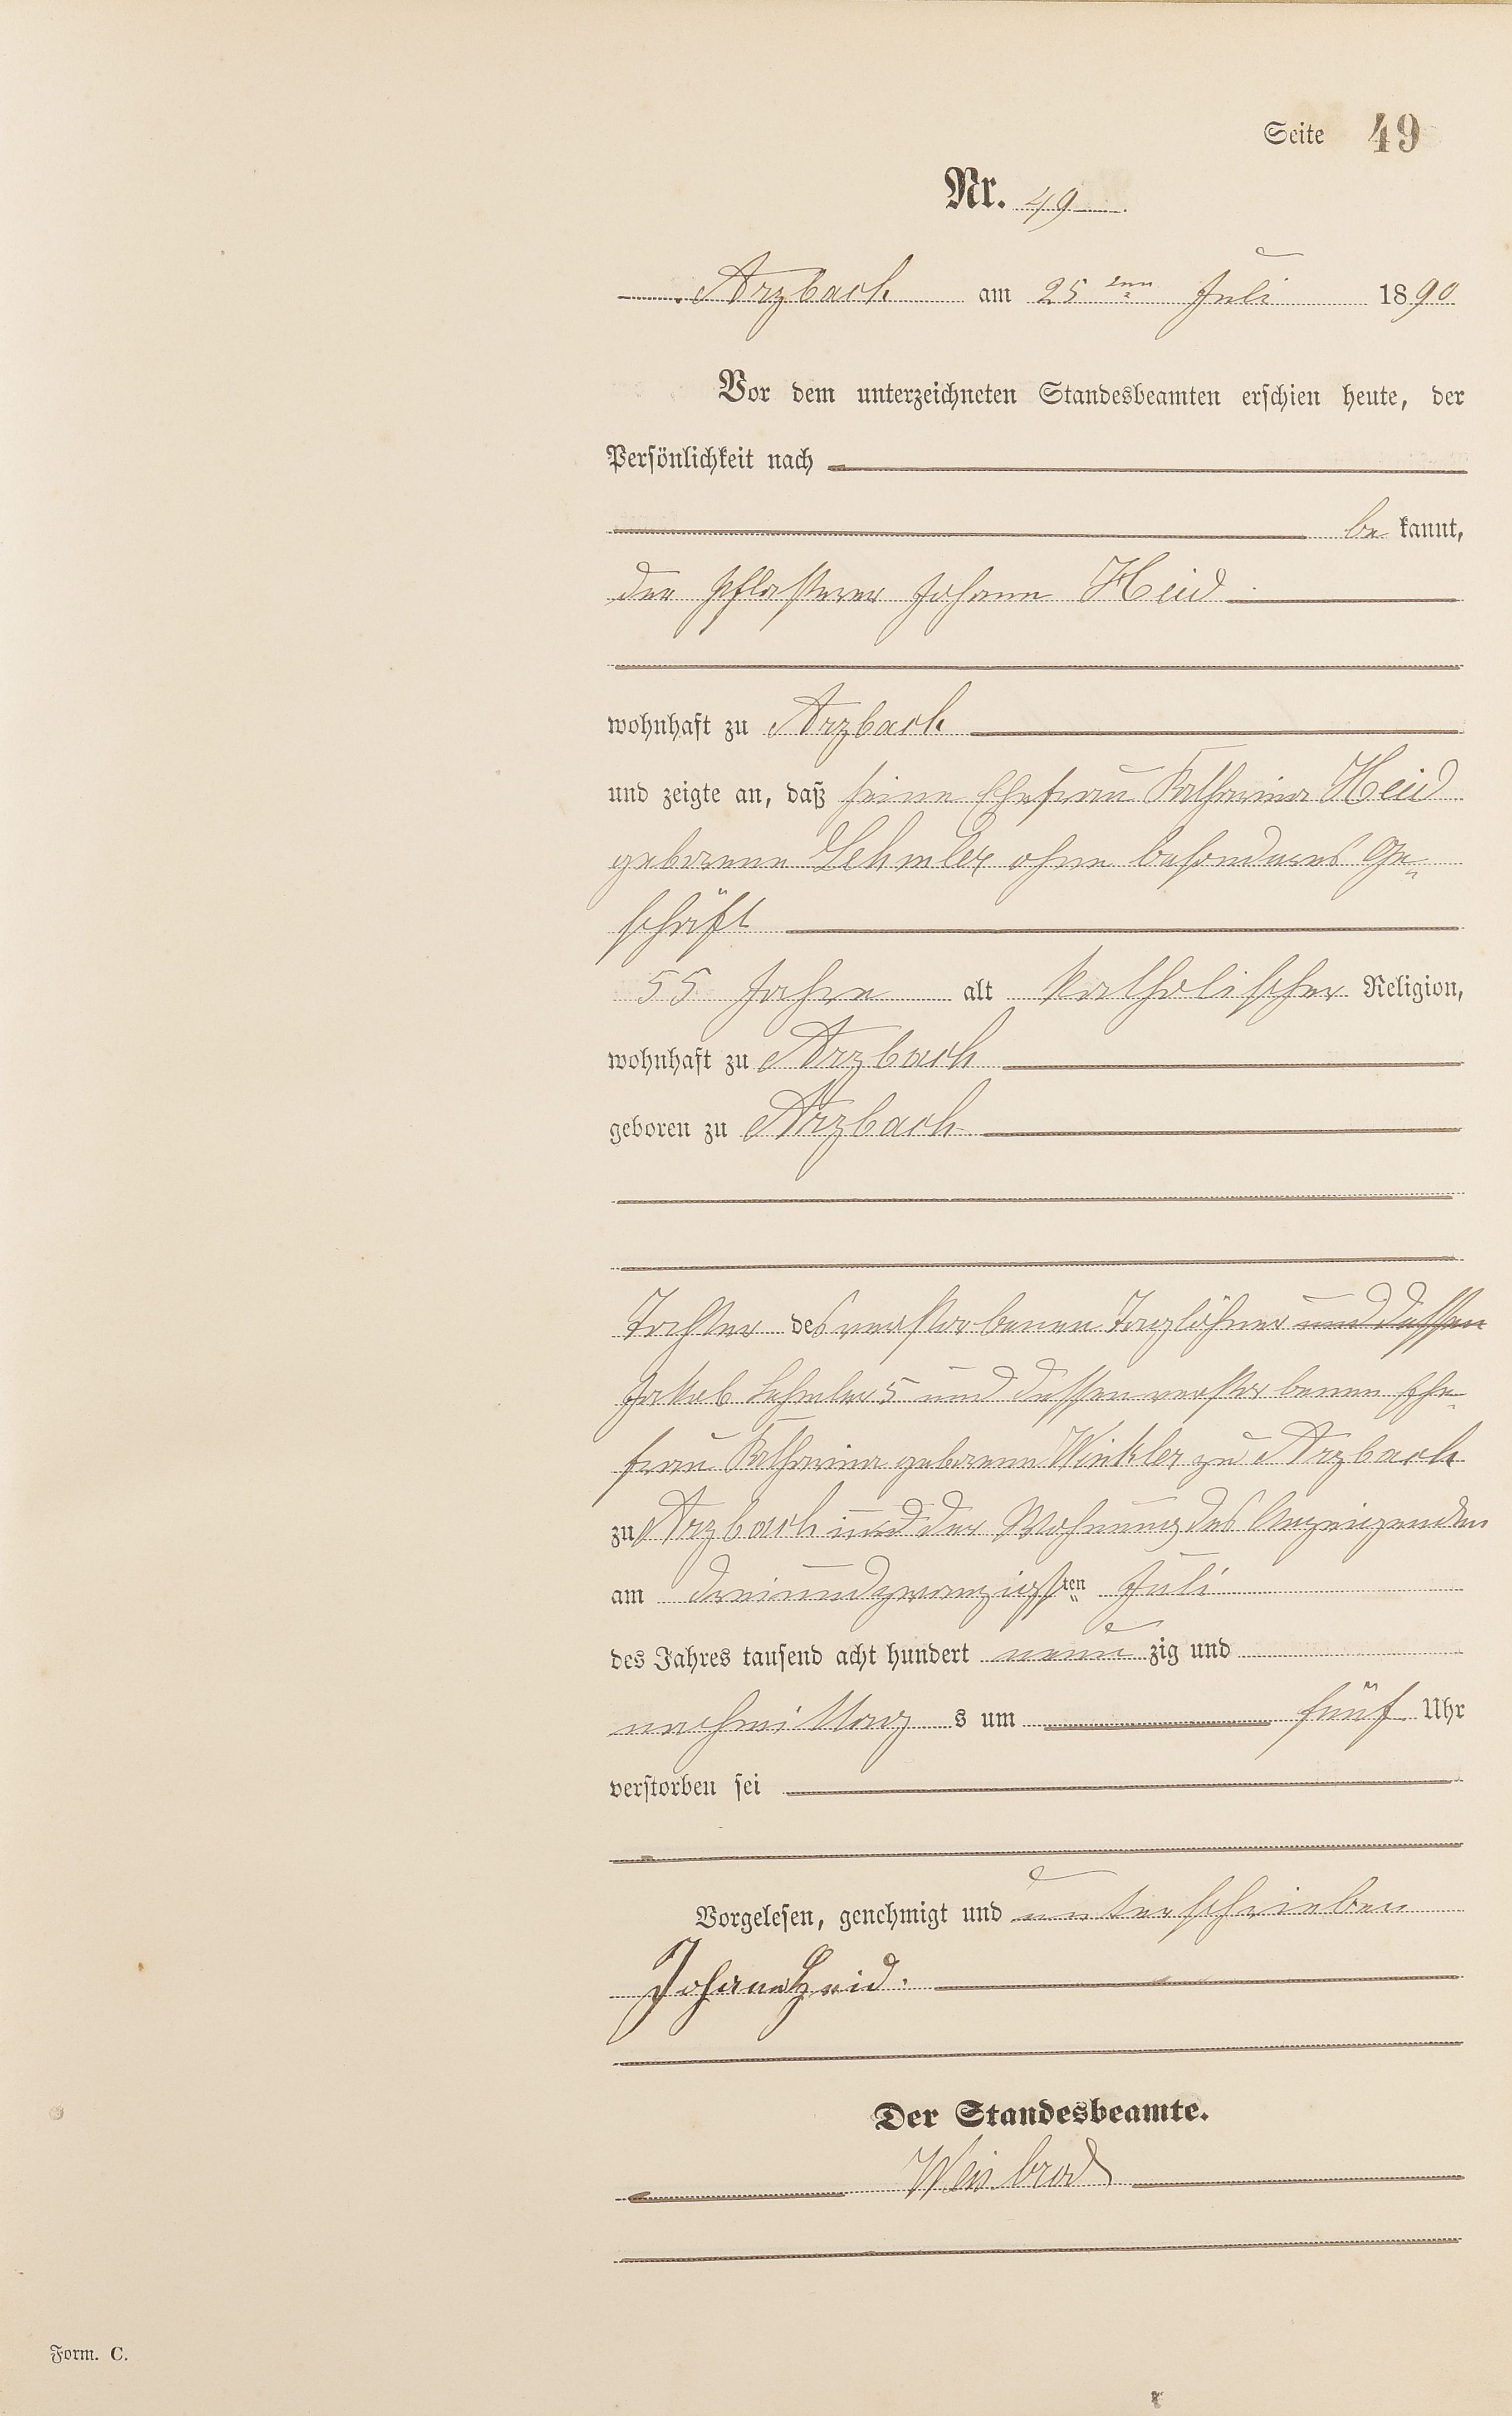 Seite 49
Nr. 49
Arzbach am 25 ten Juli 1890
Vor dem unterzeichneten Standesbeamten erschien heute, der
Persönlichkeit nach
be kannt,
der Pflasterer Johann Heid
wohnhaft zu Arzbach
und zeigte an, daß seine Ehefrau Katharina Heid
geborene Lehmler ohne besonderes Ge-
schäft
55 Jahre alt katholischer Religion,
wohnhaft zu Arzbach
geboren zu Arzbach
Tochter des verstorbenen Taglöhner und dessen
Jakob Lehmler 5 und dessen verstorbenen Ehe-
frau Katharina geborene Winkler zu Arzbach
zu Arzbach in der Wohnung des Anzeigenden
am dreiundzwanzigsten Juli
des Jahres tausend acht hundert neun zig und
nachmittag s um fünf Uhr
verstorben sei
Vorgelesen, genehmigt und unterschrieben
Johann Heid.
Der Standesbeamte.
Weisbrod
Form. C.